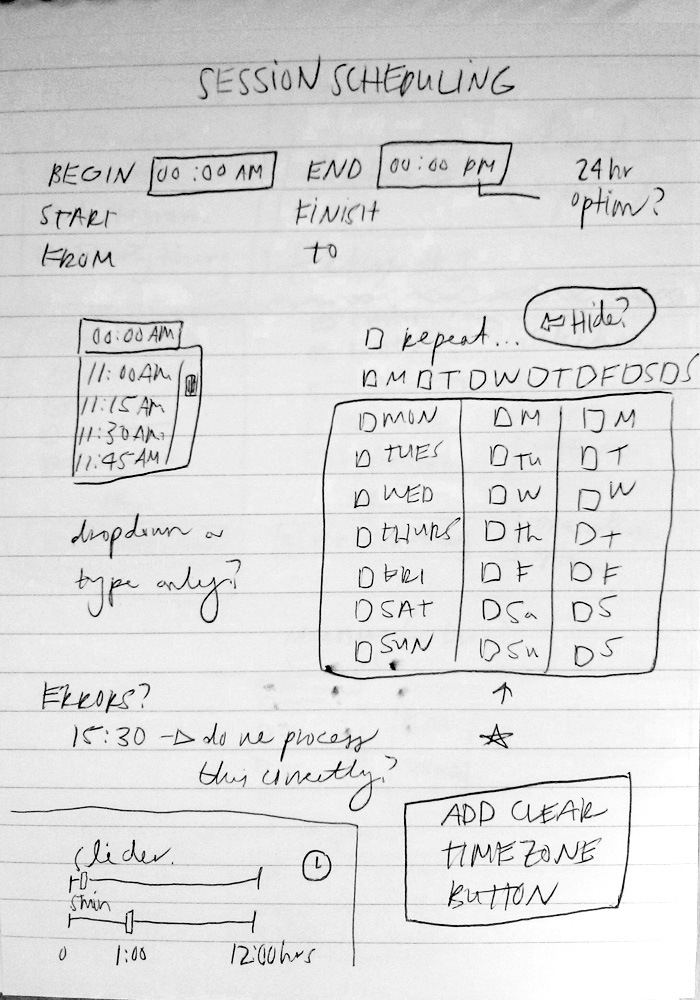 SESSION SCHEDULING
BEGIN 00:00 AM END 00:00 PM
START FINISH
FROM to
24 hr
option?
00:00 AM
11:00 AM
11:15 AM
11:30 AM
11:45 AM
dropdown or
type only?
Hide?
repeat...
M T W T F S S
MON M M
TUES Tu T
WED W W
THURS Th T
FRI F F
SAT Sa S
SUN Su S
ERRORS?
15:30 → do we process
this correctly?
slider.
5min
0 1:00 12:00hrs
ADD CLEAR
TIMEZONE
BUTTON